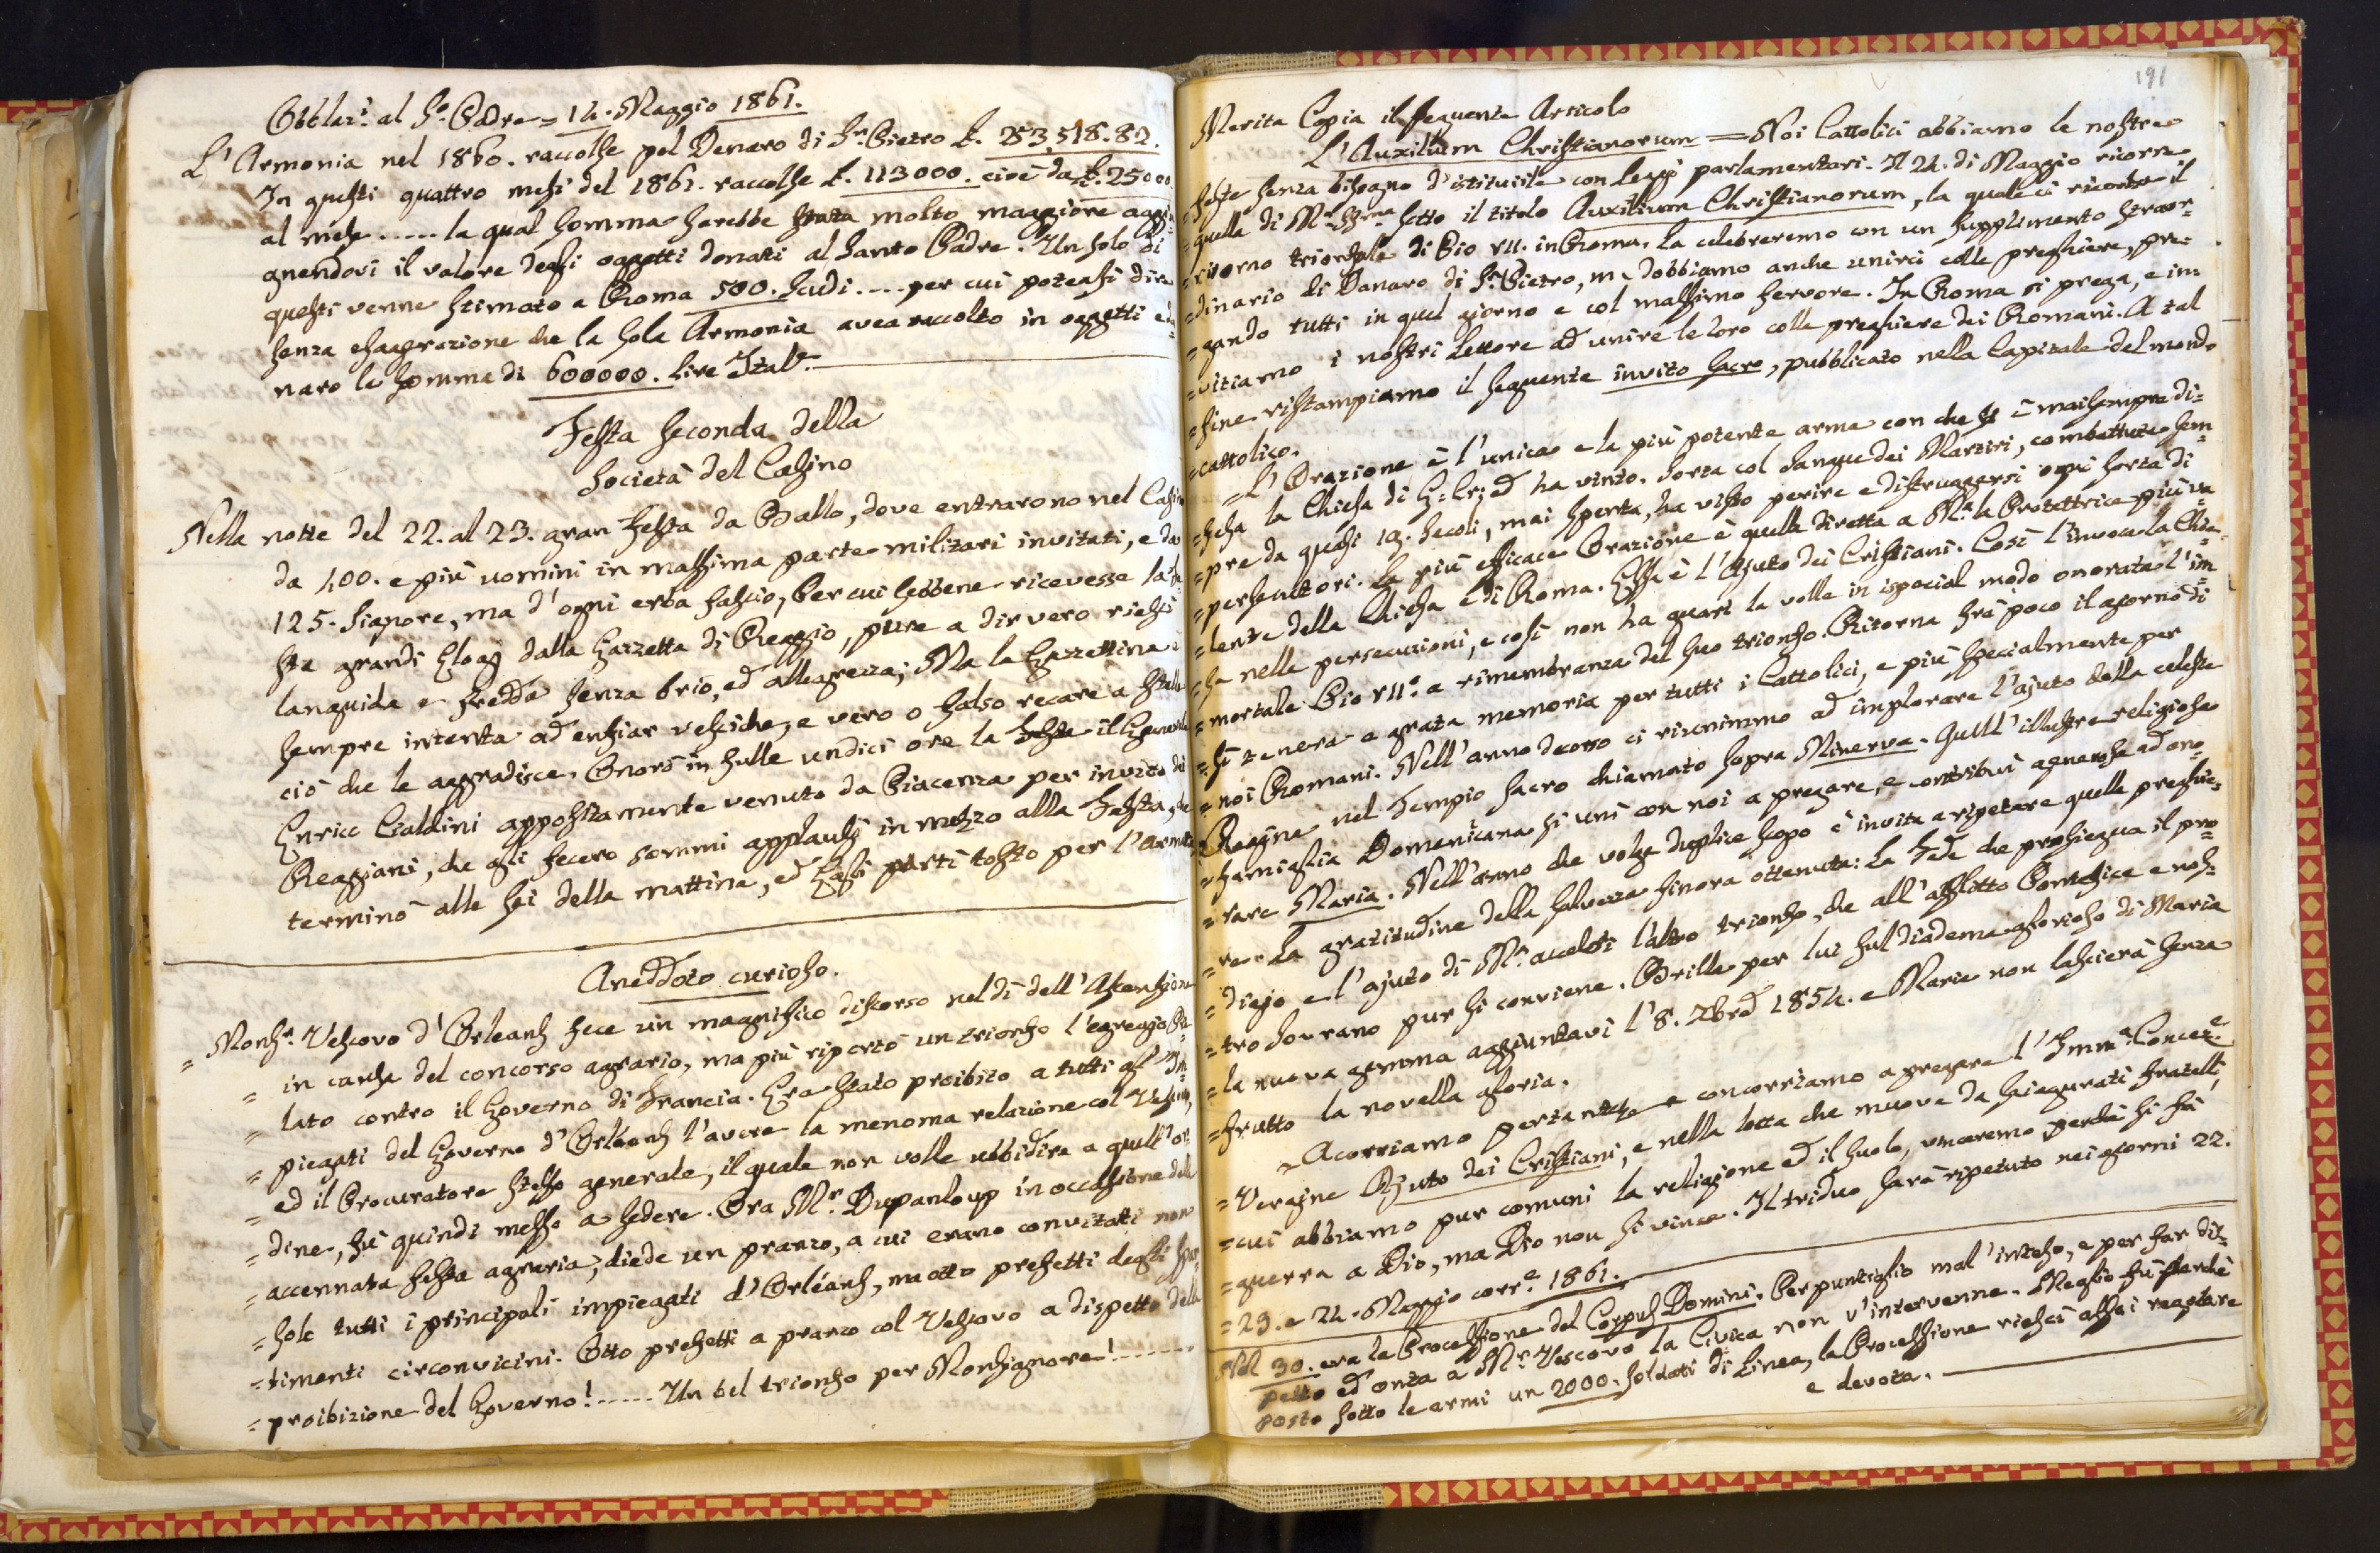 Obblaz.i al S.o Padre = 14. Maggio 1861.
L'Armonia nel 1860. raccolse pel Denaro di S.n Pietro £. 253,518.82.
In questi quattro mesi del 1861. raccolse £. 113000. cioè da £. 25000
al mese ..... la qual somma sarebbe stata molto maggiore aggiu=
gnendovi il valore degli oggetti donati al Santo Padre. Un solo di
questi venne stimato a Roma 500. Scudi .... per cui poteasi dire
senza esagerazione che la sola Armonia avea raccolto in oggetti e da=
naro la somma di 600000. lire Ital.e
Festa seconda della
Società del Casino
Nella notte del 22. al 23. gran Festa da Ballo, dove entrarono nel Casino
da 400. e più uomini in massima parte militari invitati, e da
125. Signore, ma d'ogni erba fascio, Per cui sebbene ricevesse la Fe=
sta grandi Elogj dalla Gazzetta di Reggio, pure a dir vero riescì
languida e fredda senza brio, ed allegrezza; Ma la Gazzettina è
sempre intenta ad enfiar vesciche, e vero o falso recare a stelle
ciò che le aggradisce. Onorò in sulle undici ore la Festa il Generale
Enrico Cialdini appositamente venuto da Piacenza per invito dei
Reggiani, che gli fecero sommi applausi in mezzo alla Festa, che
terminò alle sei della mattina, ed Egli partì tosto per l'Armata
Aneddoto curioso.
= Mons.r Vescovo d'Orleans fece un magnifico discorso nel dì dell'Ascensione
= in causa del concorso agrario, ma più riportò un trionfo l'egregio Pre=
= lato contro il Governo di Francia. Era stato proibito a tutti gl'Im=
= piegati del Governo d'Orléans l'avere la menoma relazione col Vescovo,
= ed il Procuratore stesso generale, il quale non volle ubbidire a quell'or=
= dine, fù quindi messo a sedere. Ora M.r Dupanloup in occasione della
= accennata festa agraria, diede un pranzo, a cui erano convitati non
= solo tutti i principali impiegati d'Orléans, ma otto prefetti degli spar=
= timenti circonvicini. Otto prefetti a pranzo col Vescovo a dispetto della
= proibizione del Governo! ..... Un bel trionfo per Monsignore! ......
191
Merita Copia il seguente Articolo
L'Auxilium Christianorum = Noi Cattolici abbiamo le nostre
= feste senza bisogno d'istituirle con leggi parlamentari. Il 24. di Maggio ricorre
= quella di M.a SS.ma sotto il titolo Auxilium Christianorum, la quale ci ricorda il
= ritorno trionfale di Pio VII. in Roma. La celebreremo con un supplimento straor=
= dinario di Danaro di S. Pietro, ma dobbiamo anche unirci colle preghiere, pre=
= gando tutti in quel giorno e col massimo fervore. In Roma si prega, e in=
= vitiamo i nostri Lettore ad unire le loro colle preghiere dei Romani. A tal
= fine ristampiamo il seguente invito sacro, pubblicato nella Capitale del mondo
= cattolico.
= L'Orazione è l'unica e la più potente arma con che si è mai sempre di=
= fesa la Chiesa di G: Cr: ed ha vinto. Sorta col Sangue dei Martiri, combattuta sem=
= pre da quasi 19. secoli, mai spenta, ha visto perire e distruggersi ogni sorta di
= persecutori. La più efficace Orazione è quella diretta a M.a la Protettrice più va=
= lente della Chiesa e di Roma. Essa è l'Ajuto dei Cristiani. Così l'invoca la Chie=
= sa nelle persecuzioni, e così non ha guari la volle in ispecial modo onorata l'im=
= mortale Pio VII.o a rimembranza del suo trionfo. Ritorna frà poco il giorno di
= sì tenera e grata memoria per tutti i Cattolici, e più specialmente per
= noi Romani. Nell'anno decorso ci riunimmo ad implorare l'ajuto della celeste
Regina nel Tempio sacro chiamato sopra Minerva. Quell'illustre religiosa
= famiglia Domenicana si unì con noi a pregare, e contribuì generosa ad ono=
= rare Maria. Nell'anno che volge duplice scopo c'invita a ripetare quelle preghie=
= re. La gratitudine della salvezza finora ottenuta: La fede che prosiegua il pro=
= digio e l'ajuto di M.a acceleri l'altro trionfo, che all'afflitto Pontefice e nos=
= tro Sovrano pur si conviene. Brilla per lui sul diadema glorioso di Maria
= la nuova gemma aggiuntavi l'8. Xbre 1854. e Maria non lascierà senza
= frutto la novella gloria.
= Acorriamo pertanto e concorriamo a pregare l'Imm.a Concez.e
= Vergine Ajuto dei Cristiani, e nella lotta che muove da sciagurati fratelli,
= cui abbiamo pur comuni la religione ed il suolo, vinceremo perchè si fà
= guerra a Dio, ma Dio non si vince. Il triduo sarà ripetuto nei giorni 22.
= 23. e 24. Maggio corr.e 1861.
Nel 30. era la Processione del Corpus Domini. Per puntiglio mal'inteso, e per far dis=
petto ed onta a M.r Vescovo la Civica non v'intervenne. Meglio fù perchè
posto sotto le armi un 2000. soldati di Linea, la Processione riescì assai regolare
e devota.